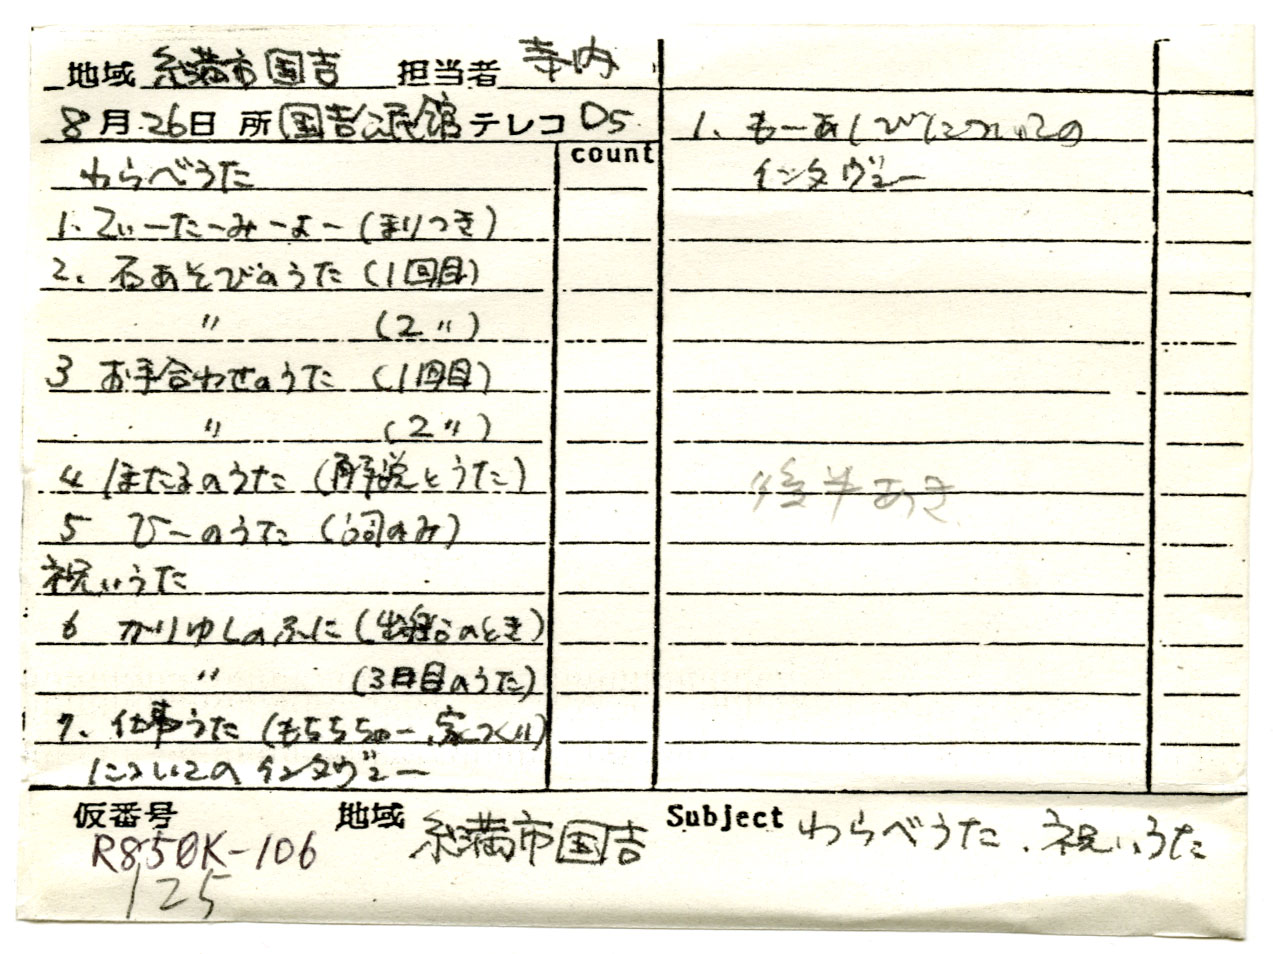 地域 糸満市国吉 担当者 寺内
8月26日 所 国吉公民館 テレコ D5
count
わらべうた
1. てぃーたーみーよー (まりつき)
2. 石あそびのうた (1回目)
〃 (2〃)
3 お手合わせのうた (1回目)
〃 (2〃)
4 ほたるのうた (解説とうた)
5 びーのうた (詞のみ)
祝いうた
6 かりゆしのふに (出船のとき)
〃 (3日目のうた)
7. 仕事うた (もちちゅー、家つくり)
についてのインタヴュー
1. もーあしびについての
インタヴュー
後半あき
仮番号 地域 糸満市国吉 Subject わらべうた、祝いうた
R850K-106
125